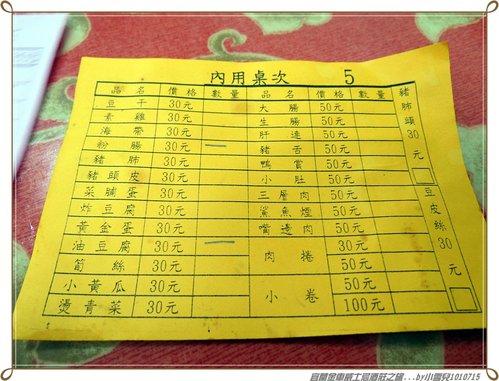 內用桌次 5
品名 價格 數量 品名 價格 數量
豆干 30元 大腸 50元
素雞 30元 生腸 50元
海帶 30元 肝連 50元
粉腸 30元 豬舌 50元
豬肺 30元 鴨賞 50元
豬頭皮 30元 小肚 50元
菜脯蛋 30元 三層肉 50元
炸豆腐 30元 鯊魚煙 50元
黃金蛋 30元 嘴邊肉 50元
油豆腐 30元 肉捲 30元
筍絲 30元 50元
小黃瓜 30元 小卷 50元
燙青菜 30元 100元
豬肺頭30元
豆皮絲30元
宜蘭金車威士忌酒莊之旅...by小雪兒1010715